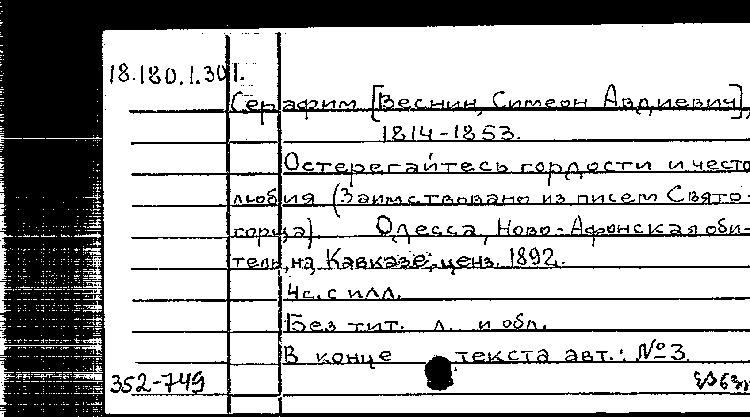 18.180.1.301.
Серафим [Веснин, Симеон Авдиевич],
1814-1853.
Остерегайтесь гордости и често
любия (Заимствовано из писем Свято-
горца). Одесса, Ново-Афонская оби-
тель, на Кавказе, ценз. 1892.
4с. с илл.
Без тит. л. и обл.
В конце текста авт.: №3.
352-749